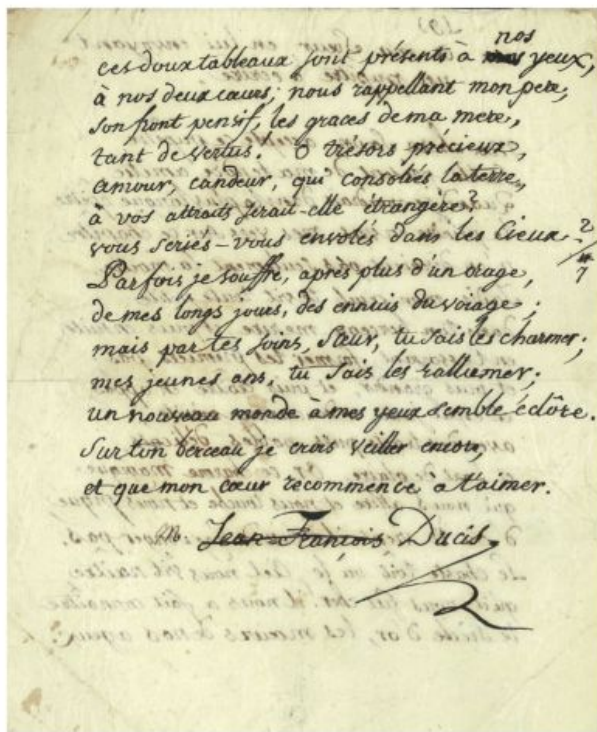 nos
ces doux tableaux sont présents à mes yeux,
à nos deux cœurs; nous rappellant mon pere,
son front pensif, les graces de ma mere,
tant de vertus. O trésors précieux,
amour, candeur, qui consoliés la terre,
à vos attraits serait-elle étrangère?
vous seriés-vous envolés dans les Cieux?
Parfois je souffre, après plus d'un orage,
de mes longs jours, des ennuis du voiage;
mais par tes soins, Sœur, tu sais les charmer;
mes jeunes ans, tu sais les rallumer;
un nouveau monde à mes yeux semble éclôre.
Sur ton berceau je crois veiller encore,
et que mon cœur recommence a t'aimer.
Jean-François Ducis.